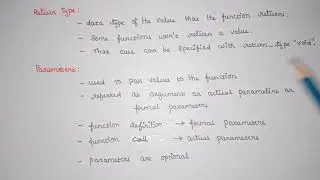 Return Type :
- data type of the value that the function returns.
- Some functions won't return a value.
- That case can be specified with return_type "void".
Parameters :
- used to pass values to the function
- referred as argument or actual parameters or
formal parameters
- function definition → formal parameters
- function call → actual parameters
- parameters are optional